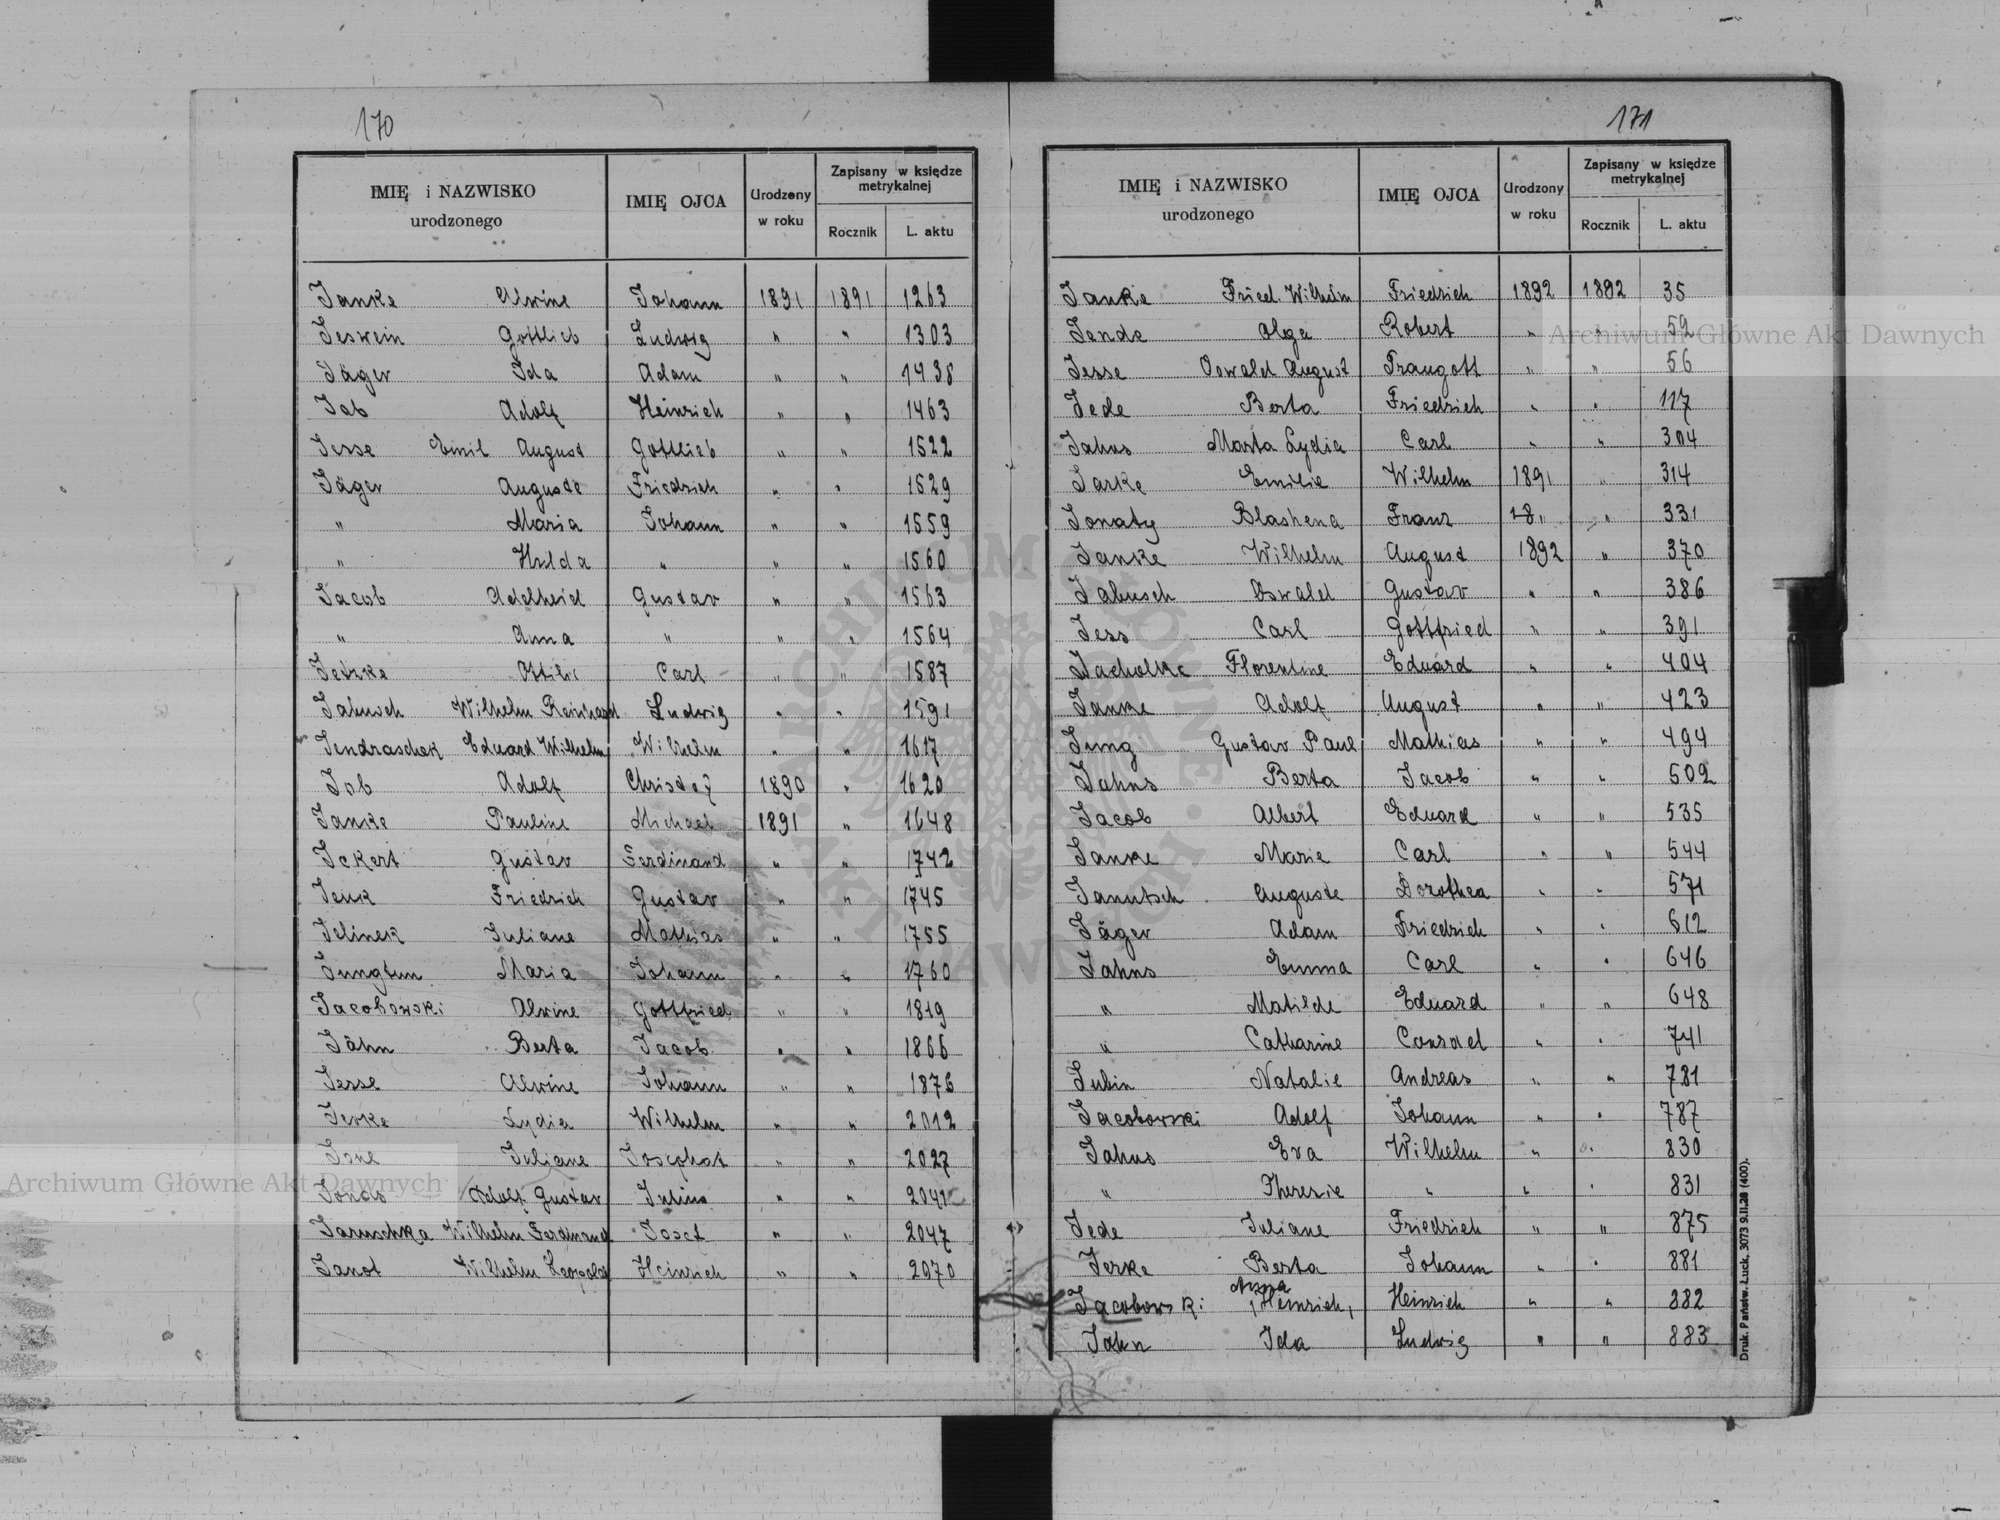 170
IMIĘ i NAZWISKO urodzonego IMIĘ OJCA Urodzony w roku Zapisany w księdze metrykalnej Rocznik L. aktu
Janke Alwine Johann 1891 1891 1263
Jeskein Gottlieb Ludwig " " 1303
Jäger Ida Adam " " 1438
Job Adolf Heinrich " " 1463
Jesse Emil August Gottlieb " " 1522
Jäger Auguste Friedrich " " 1529
" Maria Johann " " 1559
" Hulda " " " 1560
Jacob Adelheid Gustav " " 1563
" Anna " " " 1564
Jetzke Ottilie Carl " " 1587
Jabusch Wilhelm Reinhard Ludwig " " 1591
Jendraschek Eduard Wilhelm Wilhelm " " 1617
Job Adolf 1890 " 1620
Janke Pauline Michael 1891 " 1648
Jckert Gustav Ferdinand " " 1742
Jenk Friedrich Gustav " " 1745
Jelinek Juliane Mathias " " 1755
Maria Johann " " 1760
Jacobowski Alwine Gottfried " " 1819
Jähn Berta Jacob " " 1866
Jesse Alwine Johann " " 1876
Jerke Lydia Wilhelm " " 2012
Juliane Josephat " " 2027
Adolf Gustav " " 2041
Jaruschka Wilhelm Ferdinand Josef " " 2047
Janot Wilhelm Leopold Heinrich " " 2070
171
IMIĘ i NAZWISKO urodzonego IMIĘ OJCA Urodzony w roku Zapisany w księdze metrykalnej Rocznik L. aktu
Janke Fried. Wilhelm Friedrich 1892 1892 35
Jende Olga Robert " " 52
Jesse Oswald August Traugott " " 56
Jede Berta Friedrich " " 117
Jahns Marta Lydia Carl " " 304
Jarke Emilie Wilhelm 1891 " 314
Jonaty Blashena Franz " 331
Janke Wilhelm August 1892 " 370
Jabusch Oswald Gustav " " 386
Jess Carl Gottfried " " 391
Jacholke Florentine Eduard " " 404
Janke Adolf August " " 423
Jung Gustav Paul Mathias " " 494
Jahns Berta Jacob " " 502
Jacob Albert Eduard " " 535
Janke Marie Carl " " 544
Janutsch Auguste Dorothea " " 571
Jäger Adam Friedrich " " 612
Jahns Emma Carl " " 646
" Matilde Eduard " " 648
" Catharine Conrad " " 741
Jubin Natalie Andreas " " 781
Jacobowski Adolf Johann " " 787
Jahns Eva Wilhelm " " 830
" Theresie " " " 831
Jede Juliane Friedrich " " 875
Jerke Berta Johann " " 881
Anna
Jacobowski Heinrich, Heinrich " " 882
Jahn Ida Ludwig " " 883
Druk. Państw. Łuck. 3073 9.II.28 (400).
Archiwum Główne Akt Dawnych
Archiwum Główne Akt Dawnych
ARCHIWUM GŁÓWNE AKT DAWNYCH